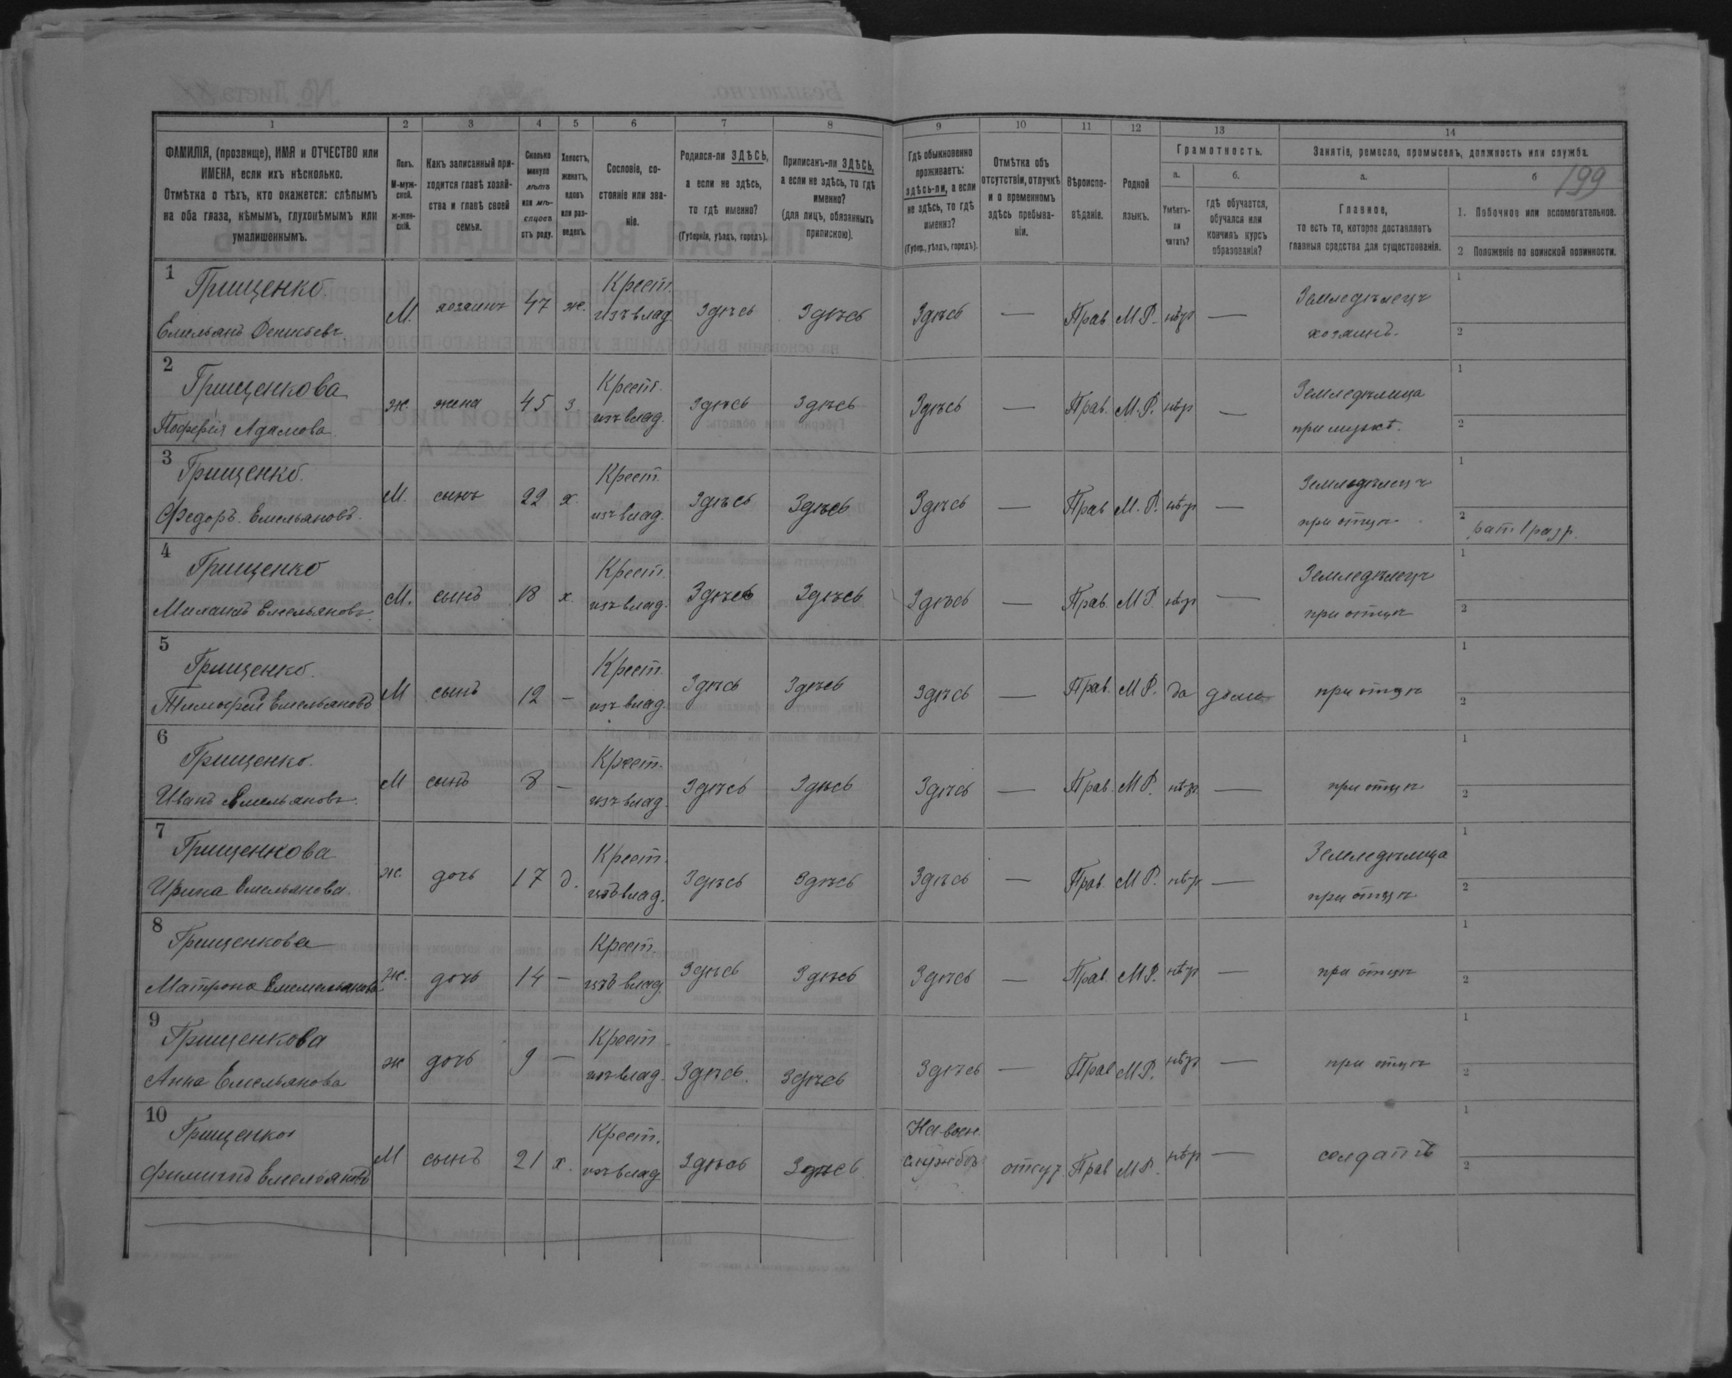 199
1 2 3 4 5 6 7 8 9 10 11 12 13 14
ФАМИЛІЯ, (прозвище), ИМЯ и ОТЧЕСТВО или ИМЕНА, если ихъ нѣсколько.
Отмѣтка о тѣхъ, кто окажется: слѣпымъ на оба глаза, нѣмымъ, глухонѣмымъ или умалишеннымъ.
Полъ. М-муж-ской. Ж-жен-скій.
Какъ записанный при-ходится главѣ хозяй-ства и главѣ своей семьи.
Сколько минуло лѣтъ или мѣ-сяцевъ отъ роду.
Холостъ, женатъ, вдовъ или раз-веденъ.
Сословіе, со-стояніе или зва-ніе.
Родился-ли ЗДѢСЬ, а если не здѣсь, то гдѣ именно? (Губернія, уѣздъ, городъ).
Приписанъ-ли ЗДѢСЬ, а если не здѣсь, то гдѣ именно? (для лицъ, обязанныхъ припискою).
Гдѣ обыкновенно проживаетъ: здѣсь-ли, а если не здѣсь, то гдѣ именно? (Губер., уѣздъ, городъ).
Отмѣтка объ отсутствіи, отлучкѣ и о временномъ здѣсь пребыва-ніи.
Вѣроиспо-вѣданіе.
Родной языкъ.
Грамотность.
а. Умѣетъ-ли читать?
б. гдѣ обучается, обучался или кончилъ курсъ образованія?
Занятіе, ремесло, промыселъ, должность или служба.
а. Главное, то есть то, которое доставляетъ главныя средства для существованія.
б 1. Побочное или вспомогательное.
2 Положеніе по воинской повинности.
1 Грищенко Крест. Земледѣлецъ 1
Емельянъ Денисьевъ М. хозяинъ 47 ж. изъ влад Здѣсь Здѣсь Здѣсь — Прав М.Р. нѣт — хозяинъ. 2
2 Грищенкова Крест. Земледѣлица 1
Адамова ж. жена 45 з изъ влад. Здѣсь Здѣсь Здѣсь — Прав. М.Р. нѣт — при мужѣ. 2
3 Грищенко. Крест. Земледѣлецъ 1
Федоръ Емельяновъ. М. сынъ 22 х. изъ влад. Здѣсь Здѣсь Здѣсь — Прав М.Р. нѣт — при отцѣ 2 рат 1 разр.
4 Грищенко Крест. Земледѣлецъ 1
Михаилъ Емельяновъ. М. сынъ 18 х изъ влад. Здѣсь Здѣсь Здѣсь — Прав. М Р. нѣт — при отцѣ 2
5 Грищенко. Крест. 1
Тимофей Емельяновъ М сынъ 12 — изъ влад. Здѣсь Здѣсь Здѣсь — Прав. М Р. да дома при отцѣ 2
6 Грищенко. Крест. 1
Иванъ Емельяновъ. М сынъ 8 — изъ влад. Здѣсь Здѣсь Здѣсь — Прав. М Р. нѣт — при отцѣ 2
7 Грищенкова Крест. Земледѣлица 1
Ирина Емельянова. ж. дочь 17 д. изъ влад. Здѣсь Здѣсь Здѣсь — Прав. М Р. нѣт — при отцѣ 2
8 Грищенкова Крест. 1
Матрона Емемельянова ж. дочь 14 — изъ влад. Здѣсь Здѣсь Здѣсь — Прав. М Р. нѣт — при отцѣ 2
9 Грищенкова Крест. 1
Анна Емельянова ж дочь 9 — изъ влад. Здѣсь. Здѣсь Здѣсь — Прав М Р. нѣт — при отцѣ 2
10 Грищенко Крест. На воен. 1
Емельяновъ М сынъ 21 х. изъ влад Здѣсь Здѣсь службѣ отсут. Прав М Р. нѣт — солдатъ 2